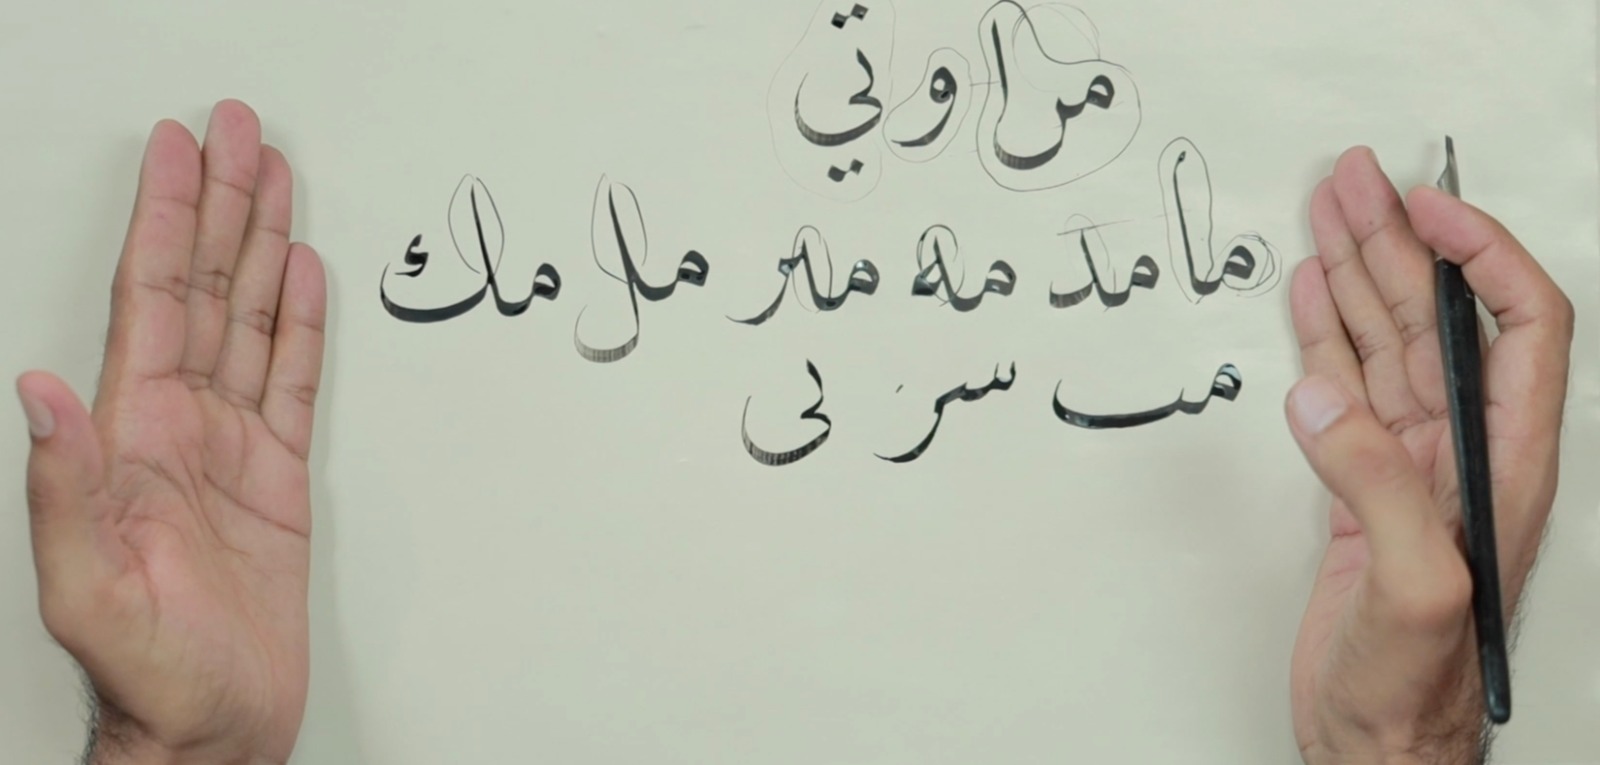 من ا و تي
ما مد مه متر مل مك
مب سر لى